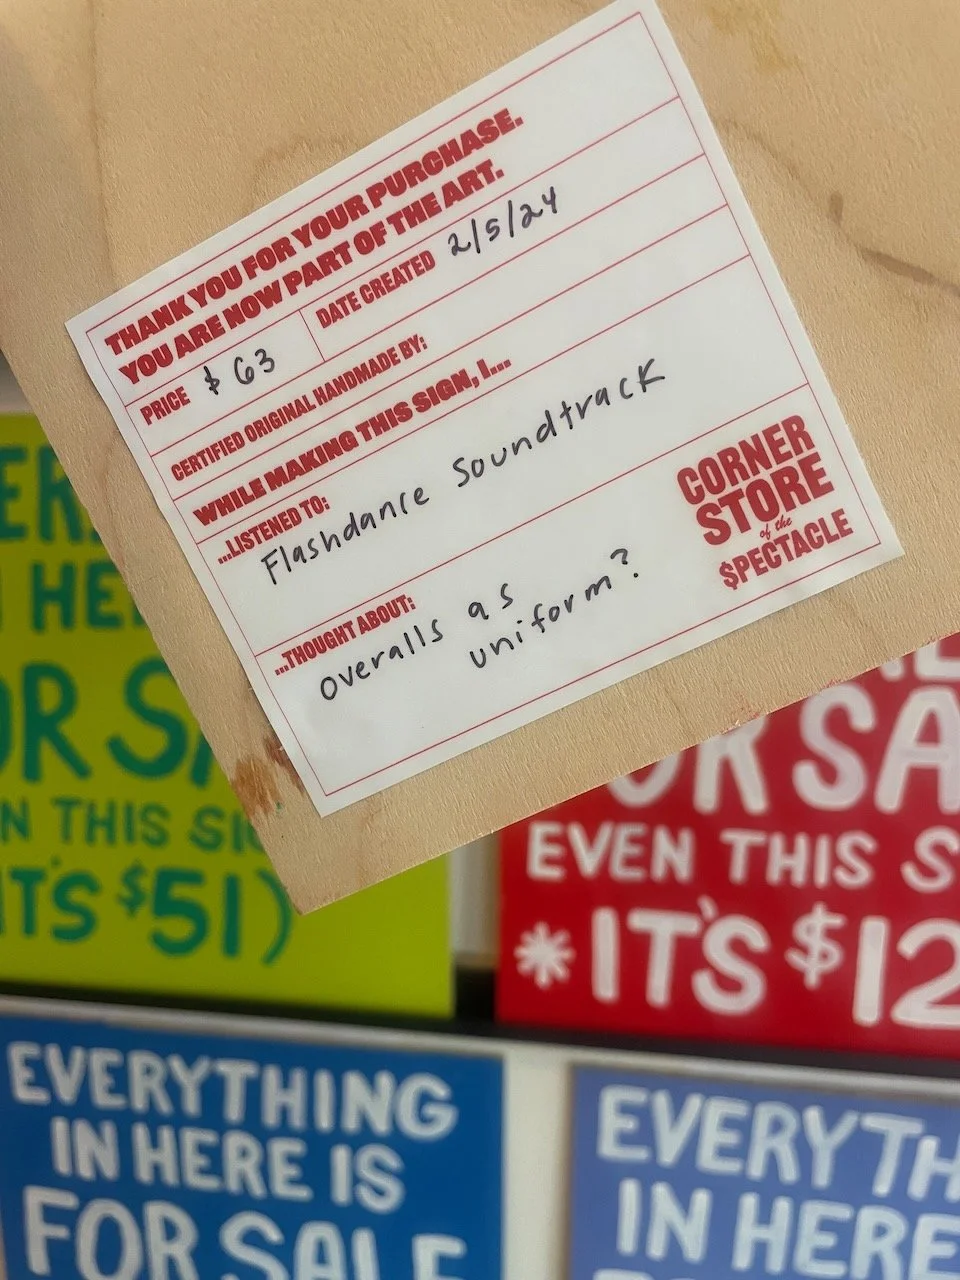 THANK YOU FOR YOUR PURCHASE.
YOU ARE NOW PART OF THE ART.
PRICE $63
DATE CREATED 2/5/24
CERTIFIED ORIGINAL HANDMADE BY:
WHILE MAKING THIS SIGN, I...
...LISTENED TO:
Flashdance Soundtrack
...THOUGHT ABOUT:
overalls as
uniform?
CORNER
STORE
of the
$PECTACLE
THIS
IT'S $51)
EVEN THIS
*IT'S $12
EVERYTHING
IN HERE IS
FOR SALE
IN HERE